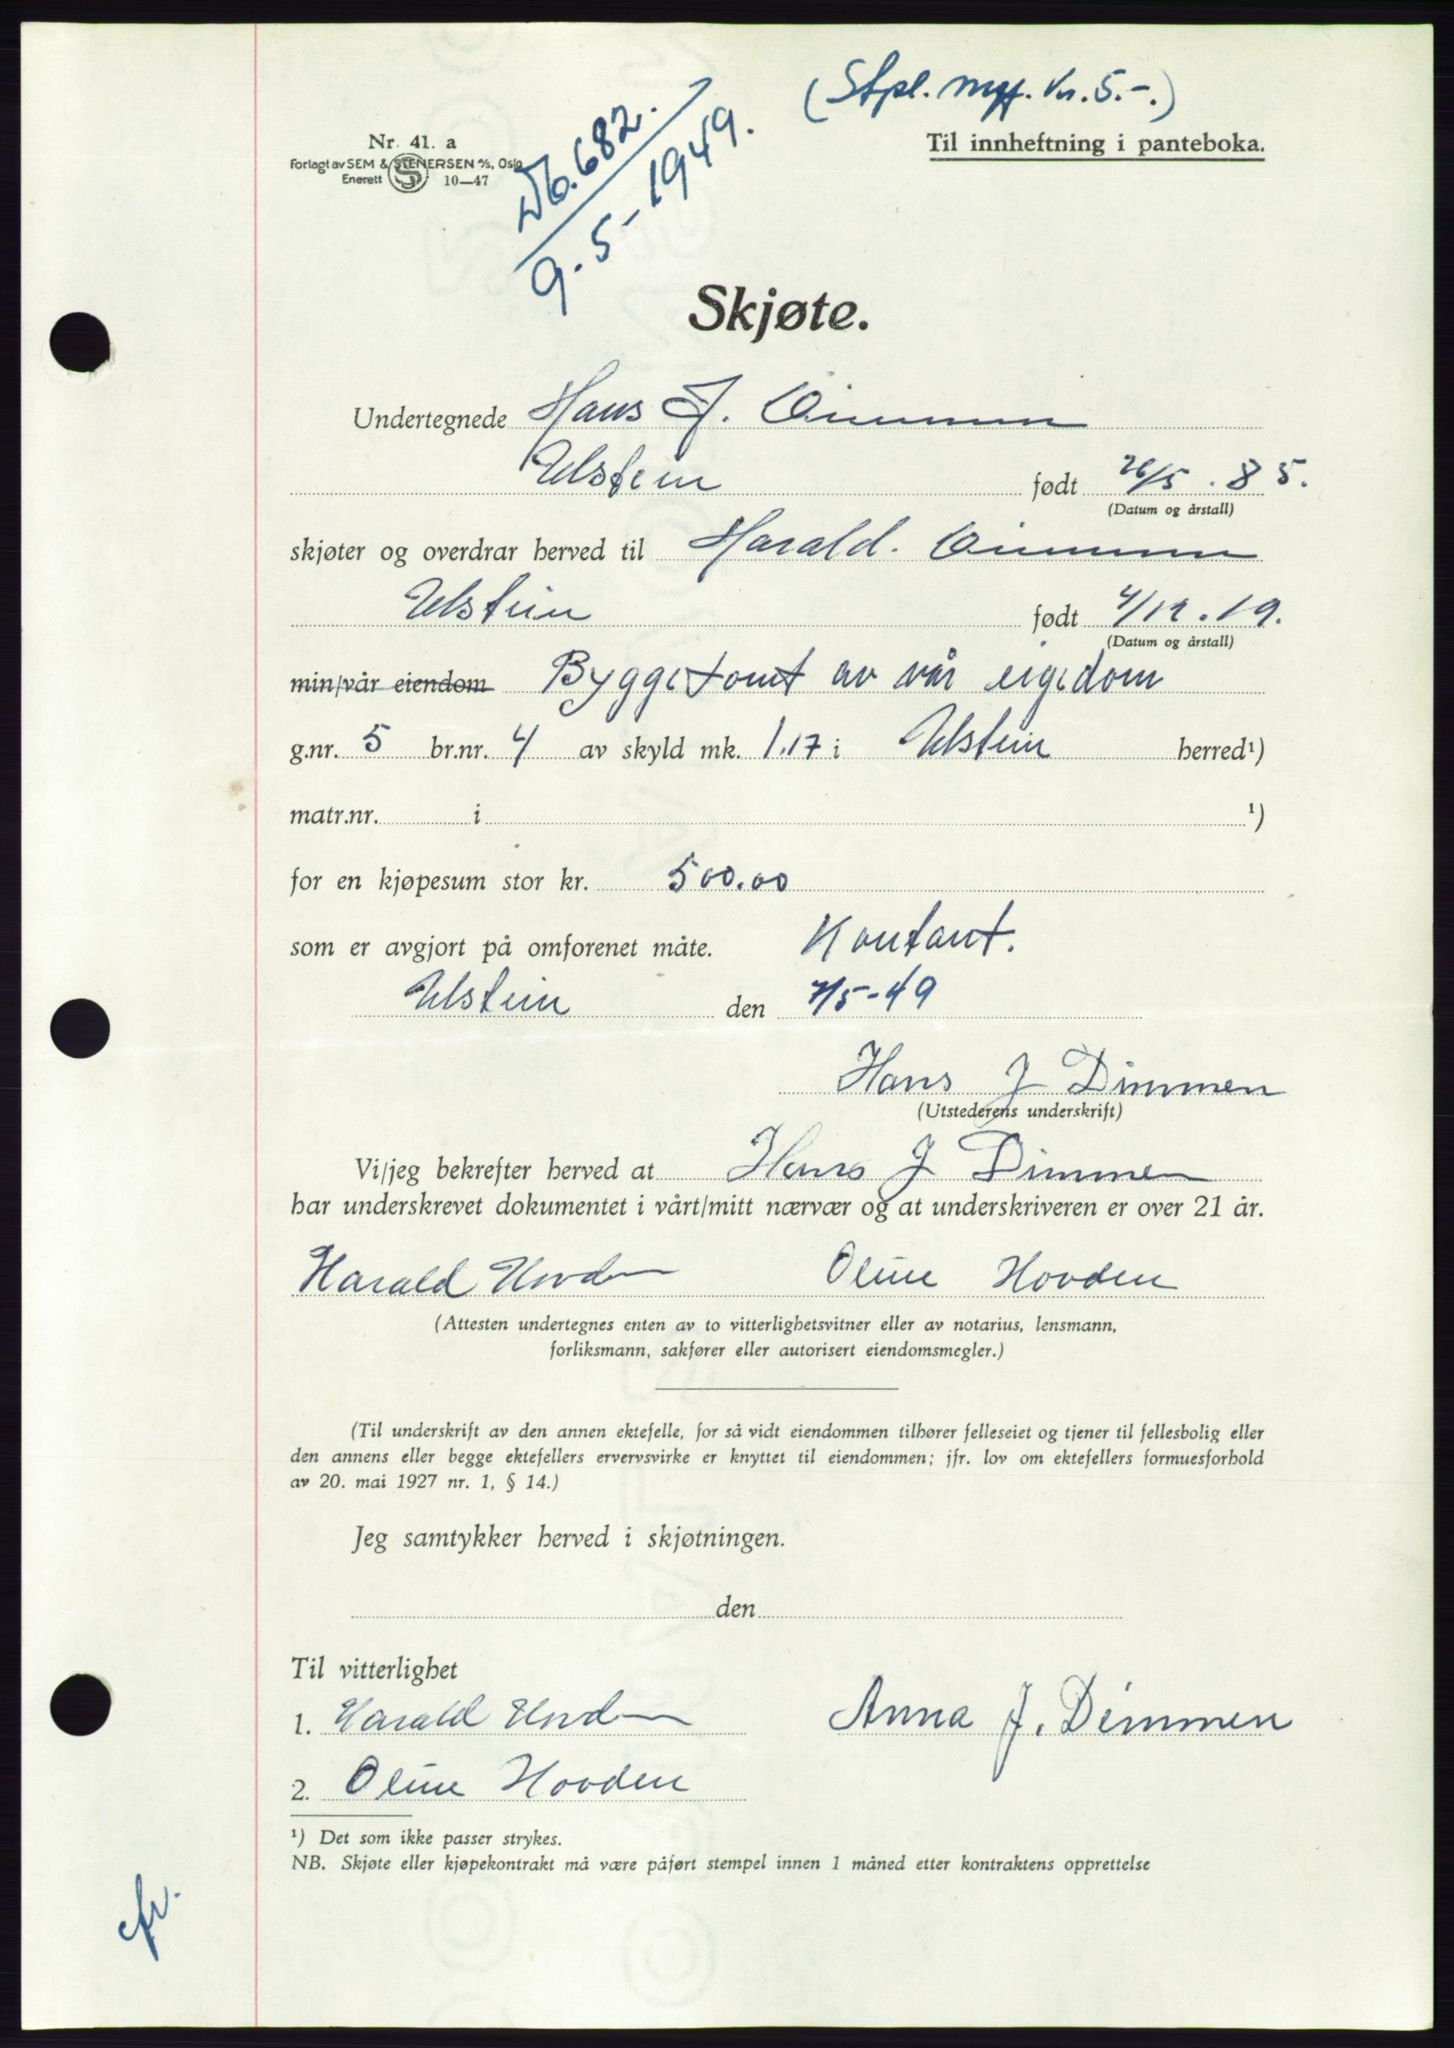 (Stpl. mrk. kr. 5.-.)
Nr. 41. a
Forlagt av SEM & STENERSEN A/S, Oslo
Enerett 10—47
Til innheftning i panteboka.
No. 682.
9.5-1949.
Skjøte.
Undertegnede Hans J. Dimmen
Ulstein født 26/5. 85.
(Datum og årstall)
skjøter og overdrar herved til Harald. Dimmen
Ulstein født 4/12. 19.
(Datum og årstall)
min/vår eiendom Byggetomt av vår eigedom
g.nr. 5 br.nr. 4 av skyld mk. 1.17 i Ulstein herred¹)
matr.nr. i ¹)
for en kjøpesum stor kr. 500.00
som er avgjort på omforenet måte. Kontant.
Ulstein den 7/5-49
Hans J Dimmen
(Utstederens underskrift)
Vi/jeg bekrefter herved at Hans J Dimmen
har underskrevet dokumentet i vårt/mitt nærvær og at underskriveren er over 21 år.
Harald Hovden Oline Hovden
(Attesten undertegnes enten av to vitterlighetsvitner eller av notarius, lensmann,
forliksmann, sakfører eller autorisert eiendomsmegler.)
(Til underskrift av den annen ektefelle, for så vidt eiendommen tilhører felleseiet og tjener til fellesbolig eller
den annens eller begge ektefellers ervervsvirke er knyttet til eiendommen; jfr. lov om ektefellers formuesforhold
av 20. mai 1927 nr. 1, § 14.)
Jeg samtykker herved i skjøtningen.
den
Til vitterlighet
1. Harald Hovden Anna J. Dimmen
2. Oline Hovden
¹) Det som ikke passer strykes.
NB. Skjøte eller kjøpekontrakt må være påført stempel innen 1 måned etter kontraktens opprettelse